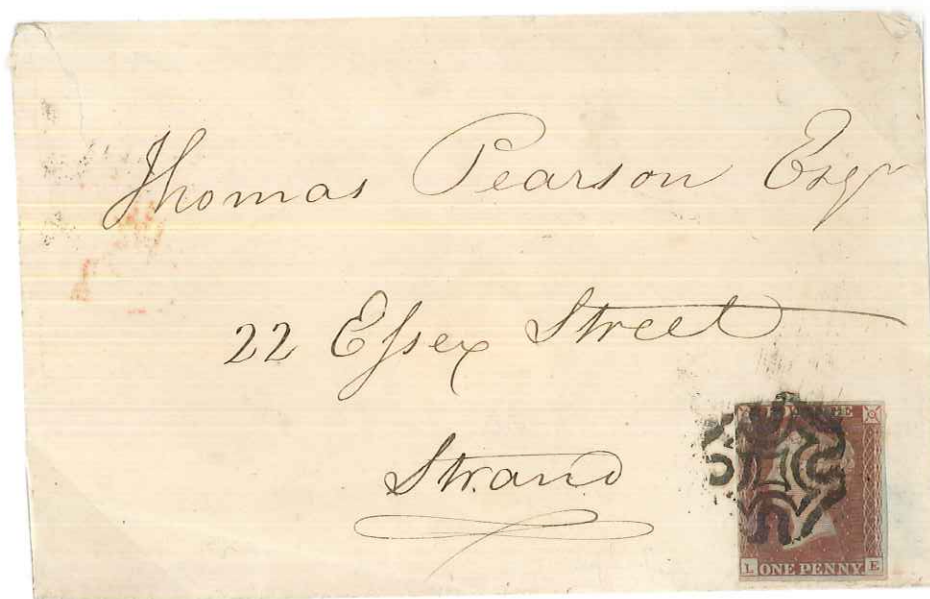 Thomas Pearson Esqr
22 Eſsex Street
Strand
L ONE PENNY E